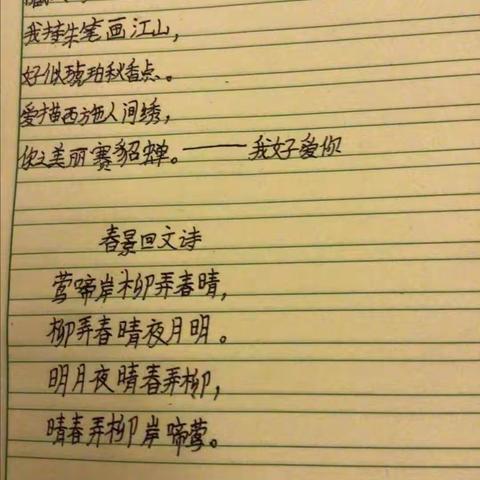 我持朱笔画江山,
好似琥珀秋香点。
爱描西施人间绣,
你之美丽赛貂蝉。——我好爱你
春景回文诗
莺啼岸柳弄春晴,
柳弄春晴夜月明。
明月夜晴春弄柳,
晴春弄柳岸啼莺。